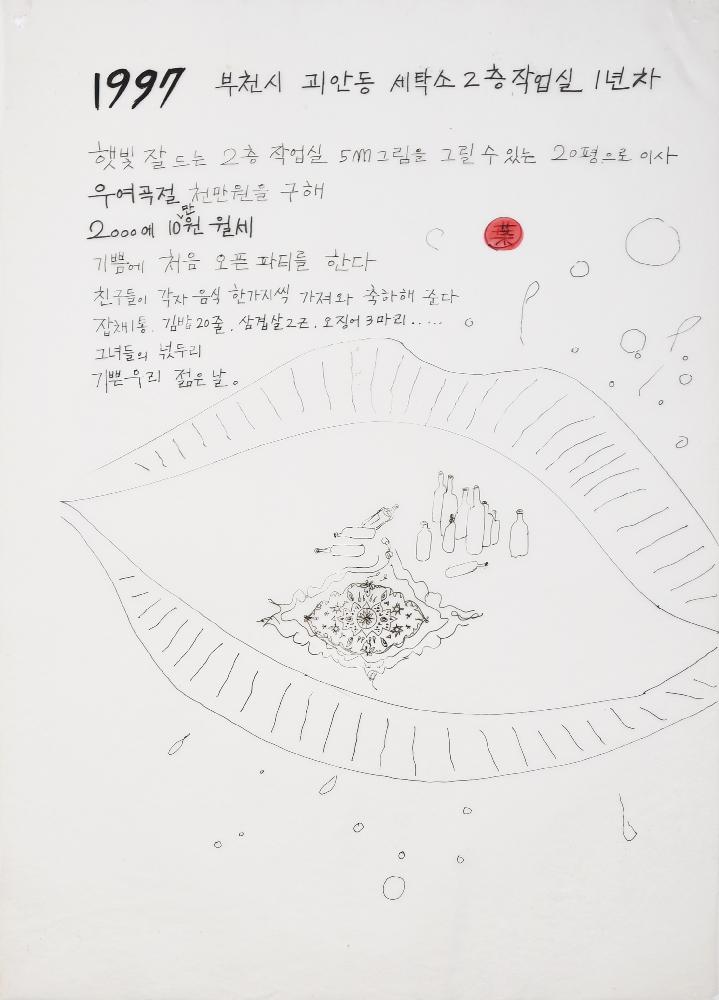 1997 부천시 괴안동 세탁소 2층 작업실 1년차
햇빛 잘 드는 2층 작업실 5m 그림을 그릴 수 있는 20평으로 이사
우여곡절 천만원을 구해
2000에 10만원 월세
기쁨에 처음 오픈 파티를 한다
친구들이 각자 음식 한가지씩 가져와 축하해 준다
잡채1통. 김밥20줄. 삼겹살2근. 오징어3마리.....
그녀들의 넋두리
기쁜우리 젊은날。
葉